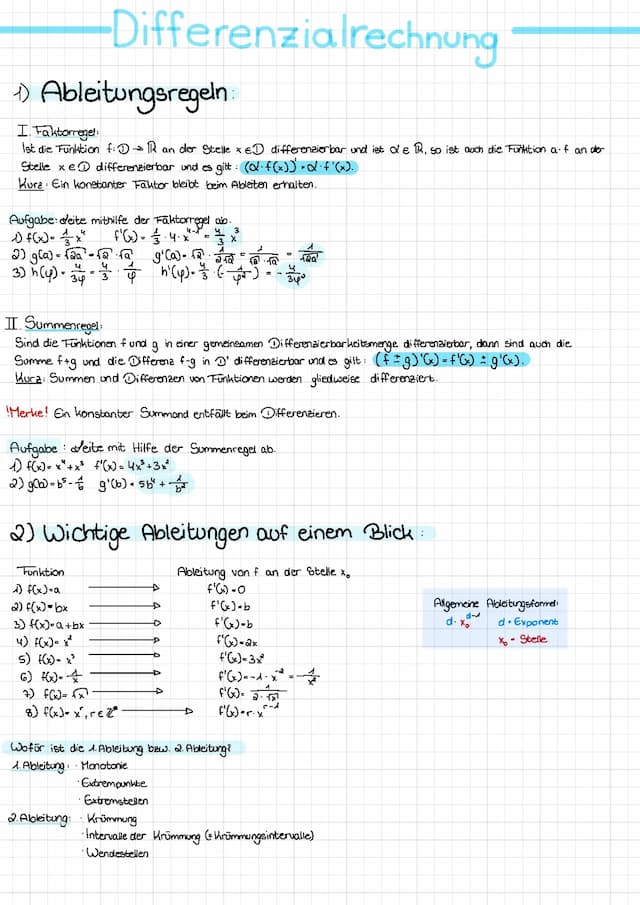 Differenzialrechnung
1) Ableitungsregeln:
I. Faktorregel:
Ist die Funktion f: D → ℝ an der Stelle x ∈ D differenzierbar und ist α ∈ ℝ, so ist auch die Funktion a · f an der
Stelle x ∈ D differenzierbar und es gilt: (α · f(x))' = α · f'(x).
Kurz: Ein konstanter Faktor bleibt beim Ableiten erhalten.
Aufgabe: Leite mithilfe der Faktorregel ab.
1) f(x) = 1/3 x⁴ f'(x) = 1/3 · 4 · x⁴⁻¹ = 4/3 x³
2) g(a) = √2a = √2 · √a g'(a) = √2 · 1/(2√a) = 1/(√2 · √a) = 1/√2a
3) h(φ) = 4/3φ = 4/3 · 1/φ h'(φ) = 4/3 · (-1/φ²) = - 4/3φ²
II. Summenregel:
Sind die Funktionen f und g in einer gemeinsamen Differenzierbarkeitsmenge differenzierbar, dann sind auch die
Summe f+g und die Differenz f-g in D' differenzierbar und es gilt: (f ± g)'(x) = f'(x) ± g'(x).
Kurz: Summen und Differenzen von Funktionen werden gliedweise differenziert.
!Merke! Ein konstanter Summand entfällt beim Differenzieren.
Aufgabe: Leite mit Hilfe der Summenregel ab.
1) f(x) = x⁴ + x³ f'(x) = 4x³ + 3x²
2) g(b) = b⁵ - 1/b g'(b) = 5b⁴ + 1/b²
2) Wichtige Ableitungen auf einem Blick:
Funktion Ableitung von f an der Stelle x₀
1) f(x) = a → f'(x) = 0
2) f(x) = bx → f'(x) = b
3) f(x) = a + bx → f'(x) = b
4) f(x) = x² → f'(x) = 2x
5) f(x) = x³ → f'(x) = 3x²
6) f(x) = 1/x → f'(x) = -1 · x⁻² = -1/x²
7) f(x) = √x → f'(x) = 1/(2 · √x)
8) f(x) = xʳ, r ∈ ℤ* → f'(x) = r · xʳ⁻¹
Allgemeine Ableitungsformel:
d · x₀ᵈ⁻¹ d = Exponent
x₀ = Stelle
Wofür ist die 1. Ableitung bzw. 2. Ableitung?
1. Ableitung: · Monotonie
· Extrempunkte
· Extremstellen
2. Ableitung: · Krümmung
· Intervalle der Krümmung (= Krümmungsintervalle)
· Wendestellen